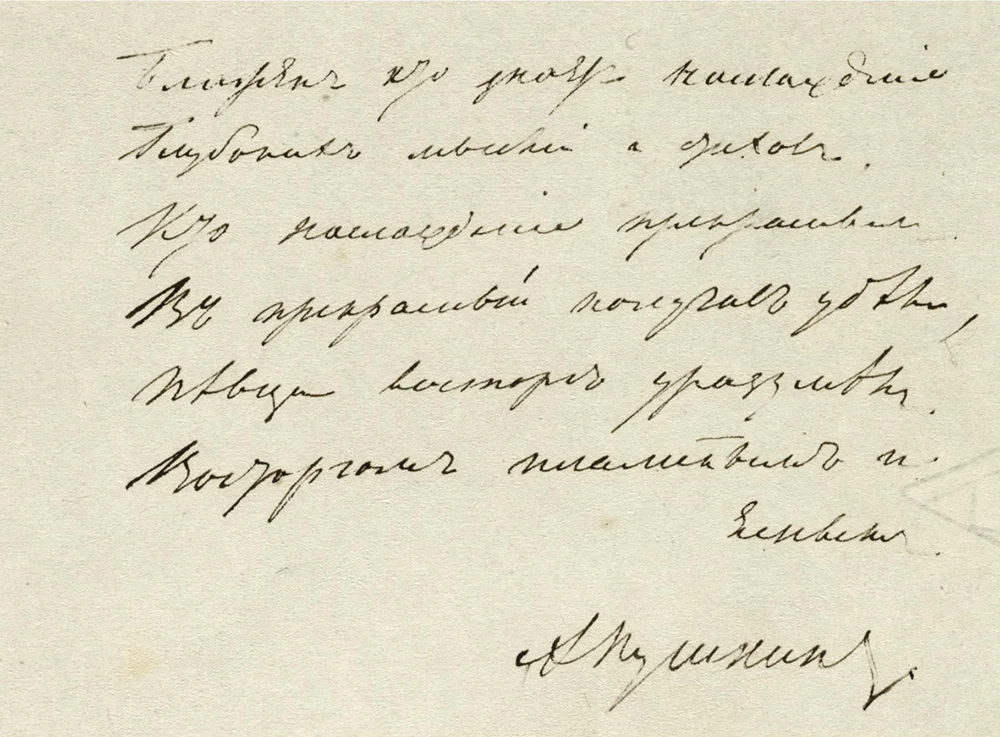 Блаженъ кто знаетъ наслажденіе
Глубокихъ мыслей и стиховъ.
Кто наслажденіе прекраснымъ
Въ прекрасный получилъ удѣлъ,
Пѣвца восторгъ уразумѣлъ
Восторгомъ пламеннымъ и
Яснымъ.
А Пушкинъ